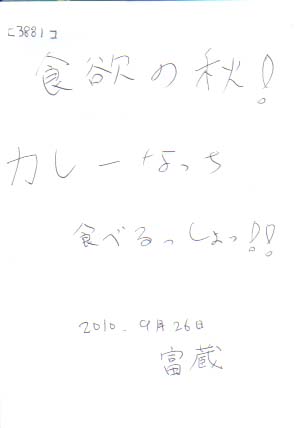 [3881]
食欲の秋!
カレーなっち
食べるっしょっ!!
2010.9月26日
富蔵